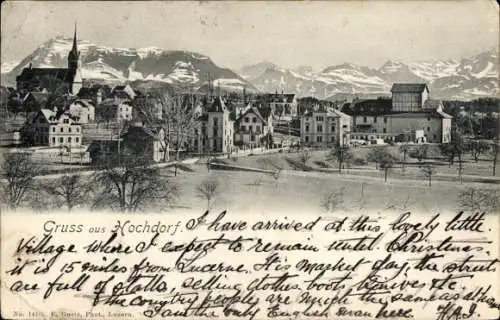 Gruss aus Hochdorf. I have arrived at this lovely little
Village where I expect to remain until Christmas.
it is 15 miles from Lucerne. It is Market day, the streets
are full of stalls, selling clothes boots, &c
the country people are much the same as at home
I am the only English man here HAJ.
No. 1405. E. Goetz, Phot., Luzern.